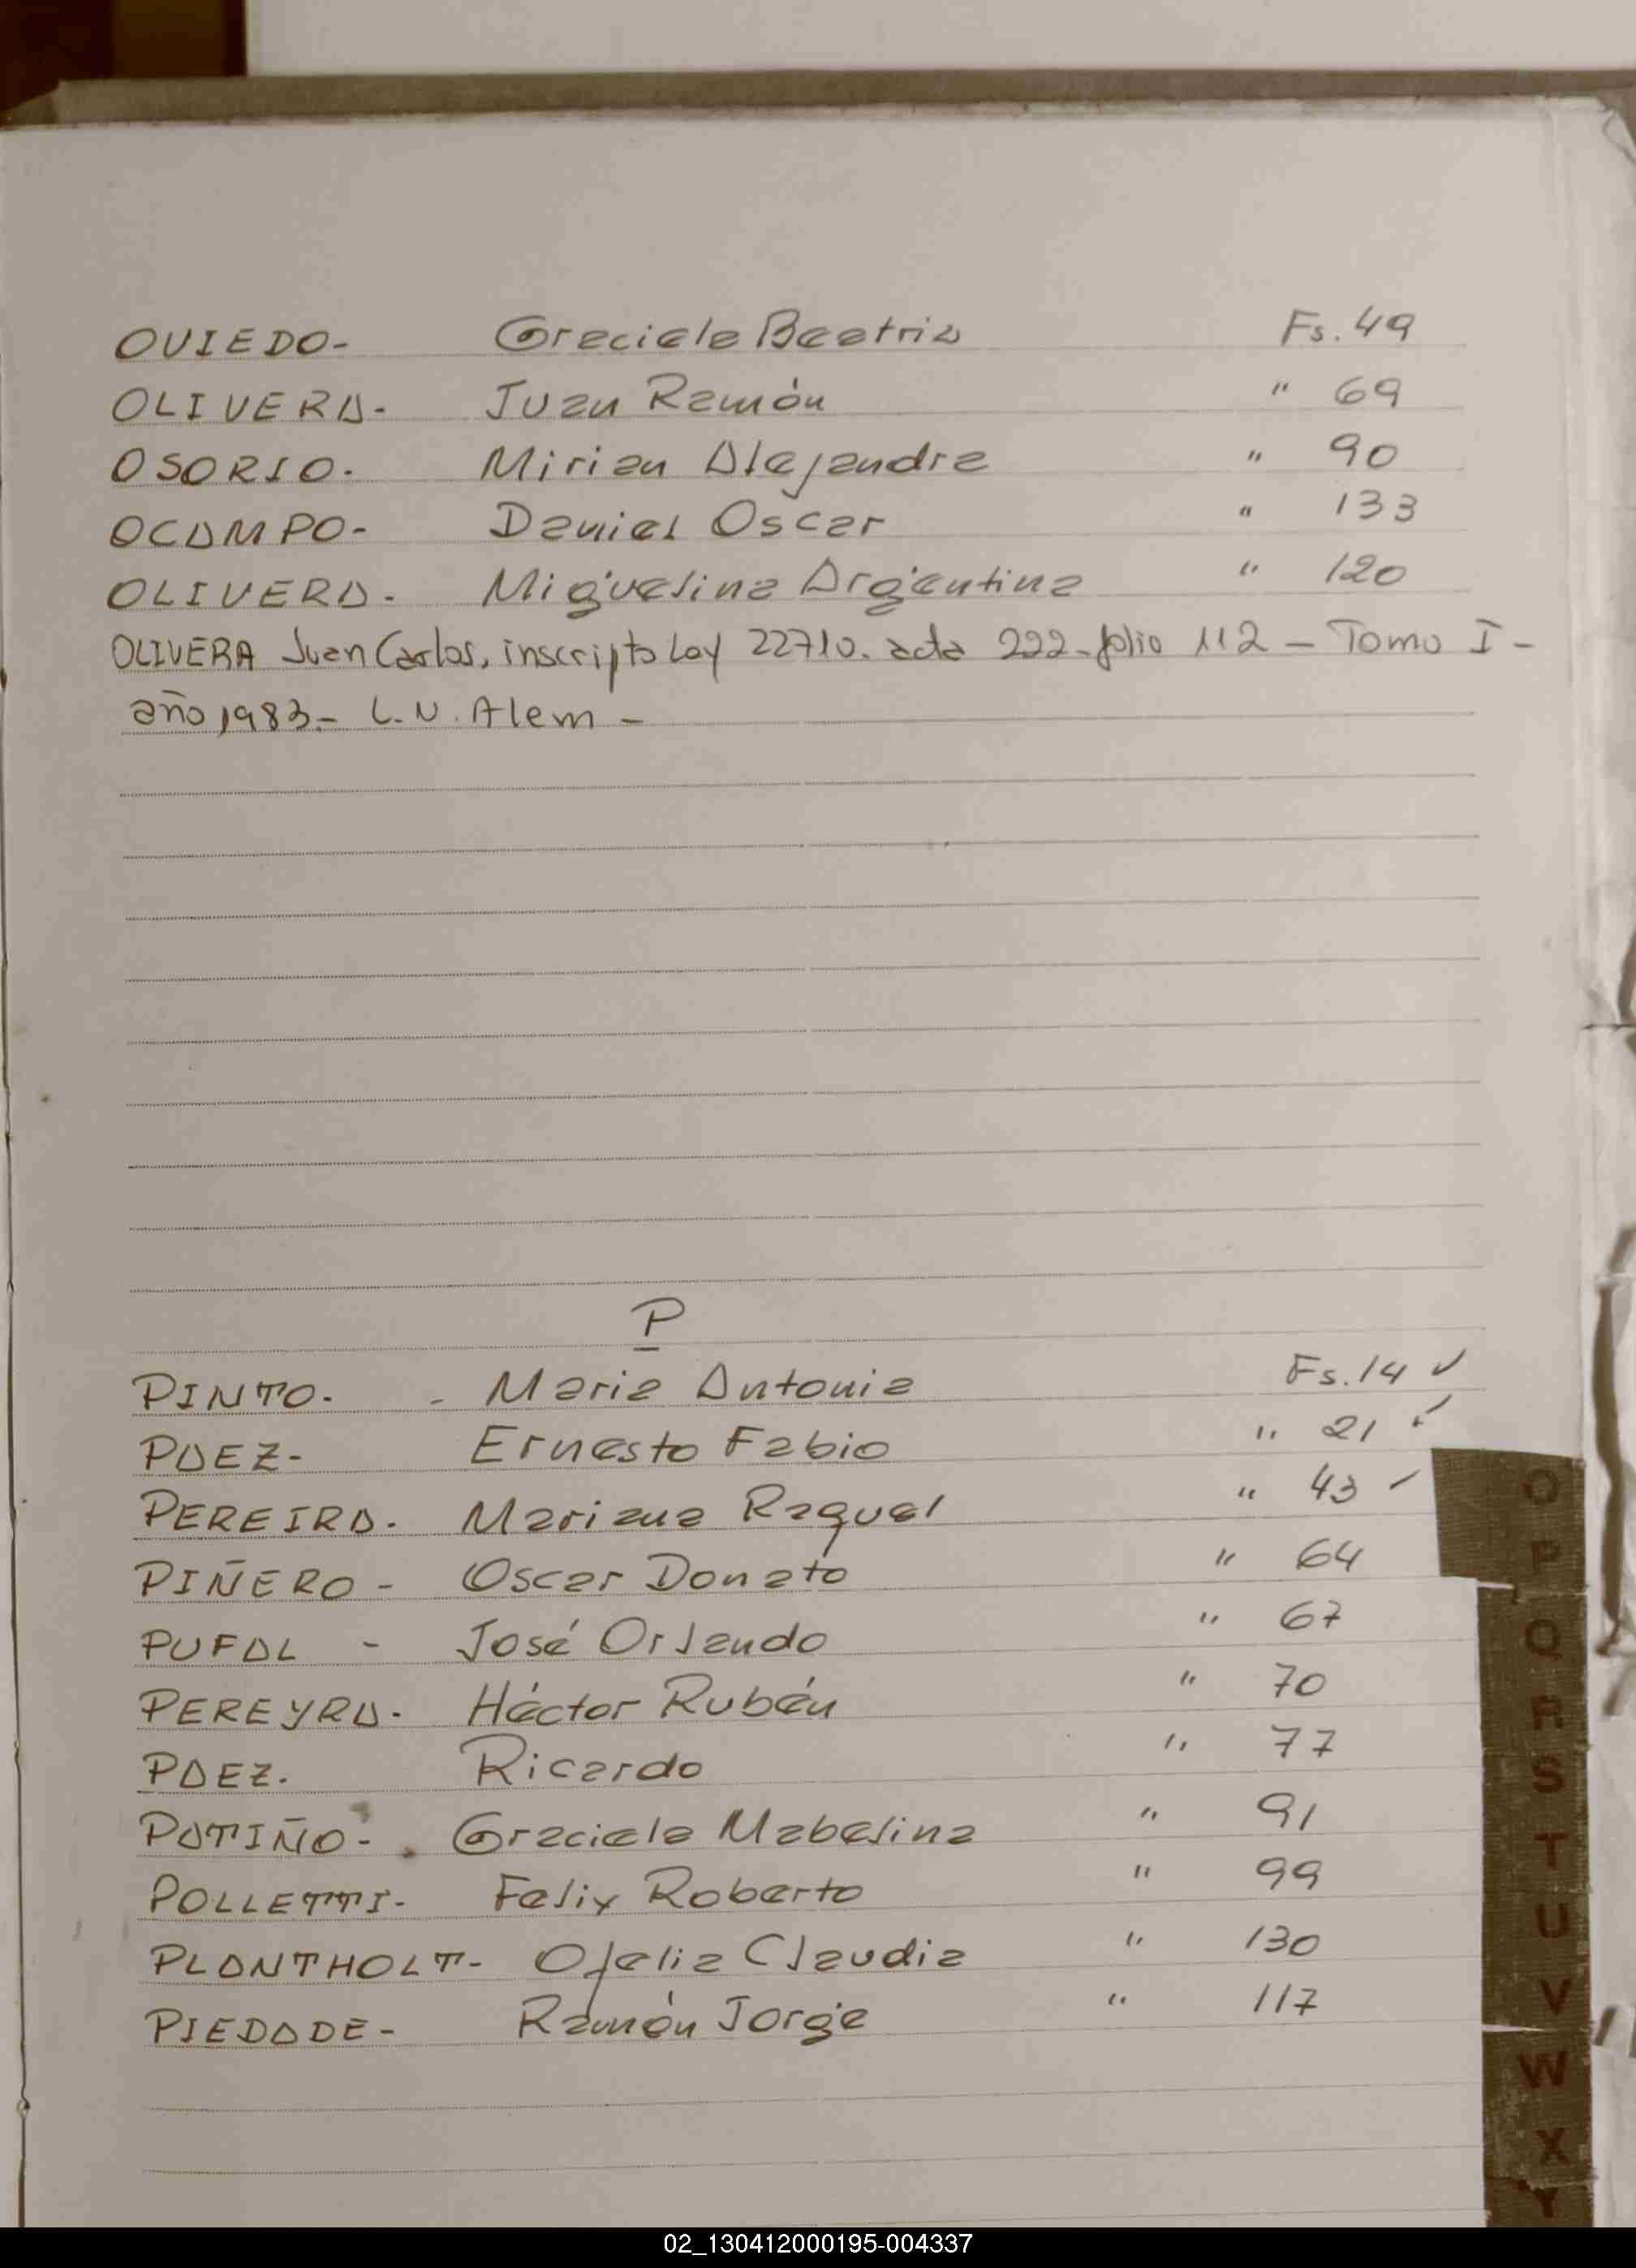 OVIEDO- Graciela Beatriz Fs. 49
OLIVERA- Juan Ramón " 69
OSORIO- Mirian Alejandra " 90
OCAMPO- Daniel Oscar " 133
OLIVERA- Miguelina Argentina " 120
OLIVERA Juan Carlos, inscripto Ley 22710. acta 222- folio 112 - Tomo I -
año 1983.- L.N. Alem -
P
PINTO- - Maria Antonia Fs. 14 ✓
PAEZ- Ernesto Fabio " 21 ✓
PEREIRA- Mariana Raquel " 43 ✓
PIÑERO- Oscar Donato " 64
PUFAL - José Orlando " 67
PEREYRA- Héctor Rubén " 70
PAEZ. Ricardo " 77
PATIÑO-. Graciela Mabelina " 91
POLLETTI- Felix Roberto " 99
PLANTHOLT- Ofelia Claudia " 130
PIEDADE- Ramón Jorge " 117
O
P
Q
R
S
T
U
V
W
X
Y
02_130412000195-004337